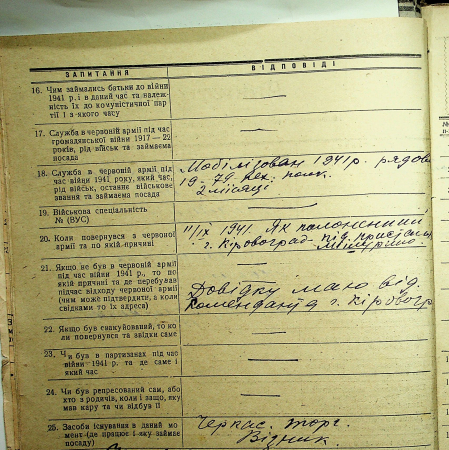 ЗАПИТАННЯ ВІДПОВІДІ
16. Чим займались батьки до війни
1941 р. і в даний час та належ-
ність їх до комуністичної пар-
тії і з якого часу
—
17. Служба в червоній армії під час
громадянської війни 1917—22
років, рід військ та займаєма
посада
—
18. Служба в червоній армії під
час війни 1941 року, який час,
рід військ, останнє військове
звання та займаєма посада
Мобілізован 1941 р. рядов
79 пех. полк.
2 місяці
19. Військова спеціальність
№ (ВУС)
—
20. Коли повернувся з червоної
армії та по якій причині
11/IX 1941. Як полонений
г. Кіровоград
21. Якщо не був в червоній армії
під час війни 1941 р., то по
якій причині та де перебував
підчас відходу червоної армії
(чим може підтвердити, а коли
свідками то їх адреса)
Довідку маю від.
Коменданта г. Кіровогр
22. Якщо був евакуйований, то ко-
ли повернувся та звідки саме
—
23. Чи був в партизанах під час
війни 1941 р. та де саме і
який час
—
24. Чи був репресований сам, або
хто з родичів, коли і защо, яку
мав кару та чи відбув її
—
25. Засоби існування в даний мо-
мент (де працює і яку займає
посаду)
Черкас. торг.
Візник.